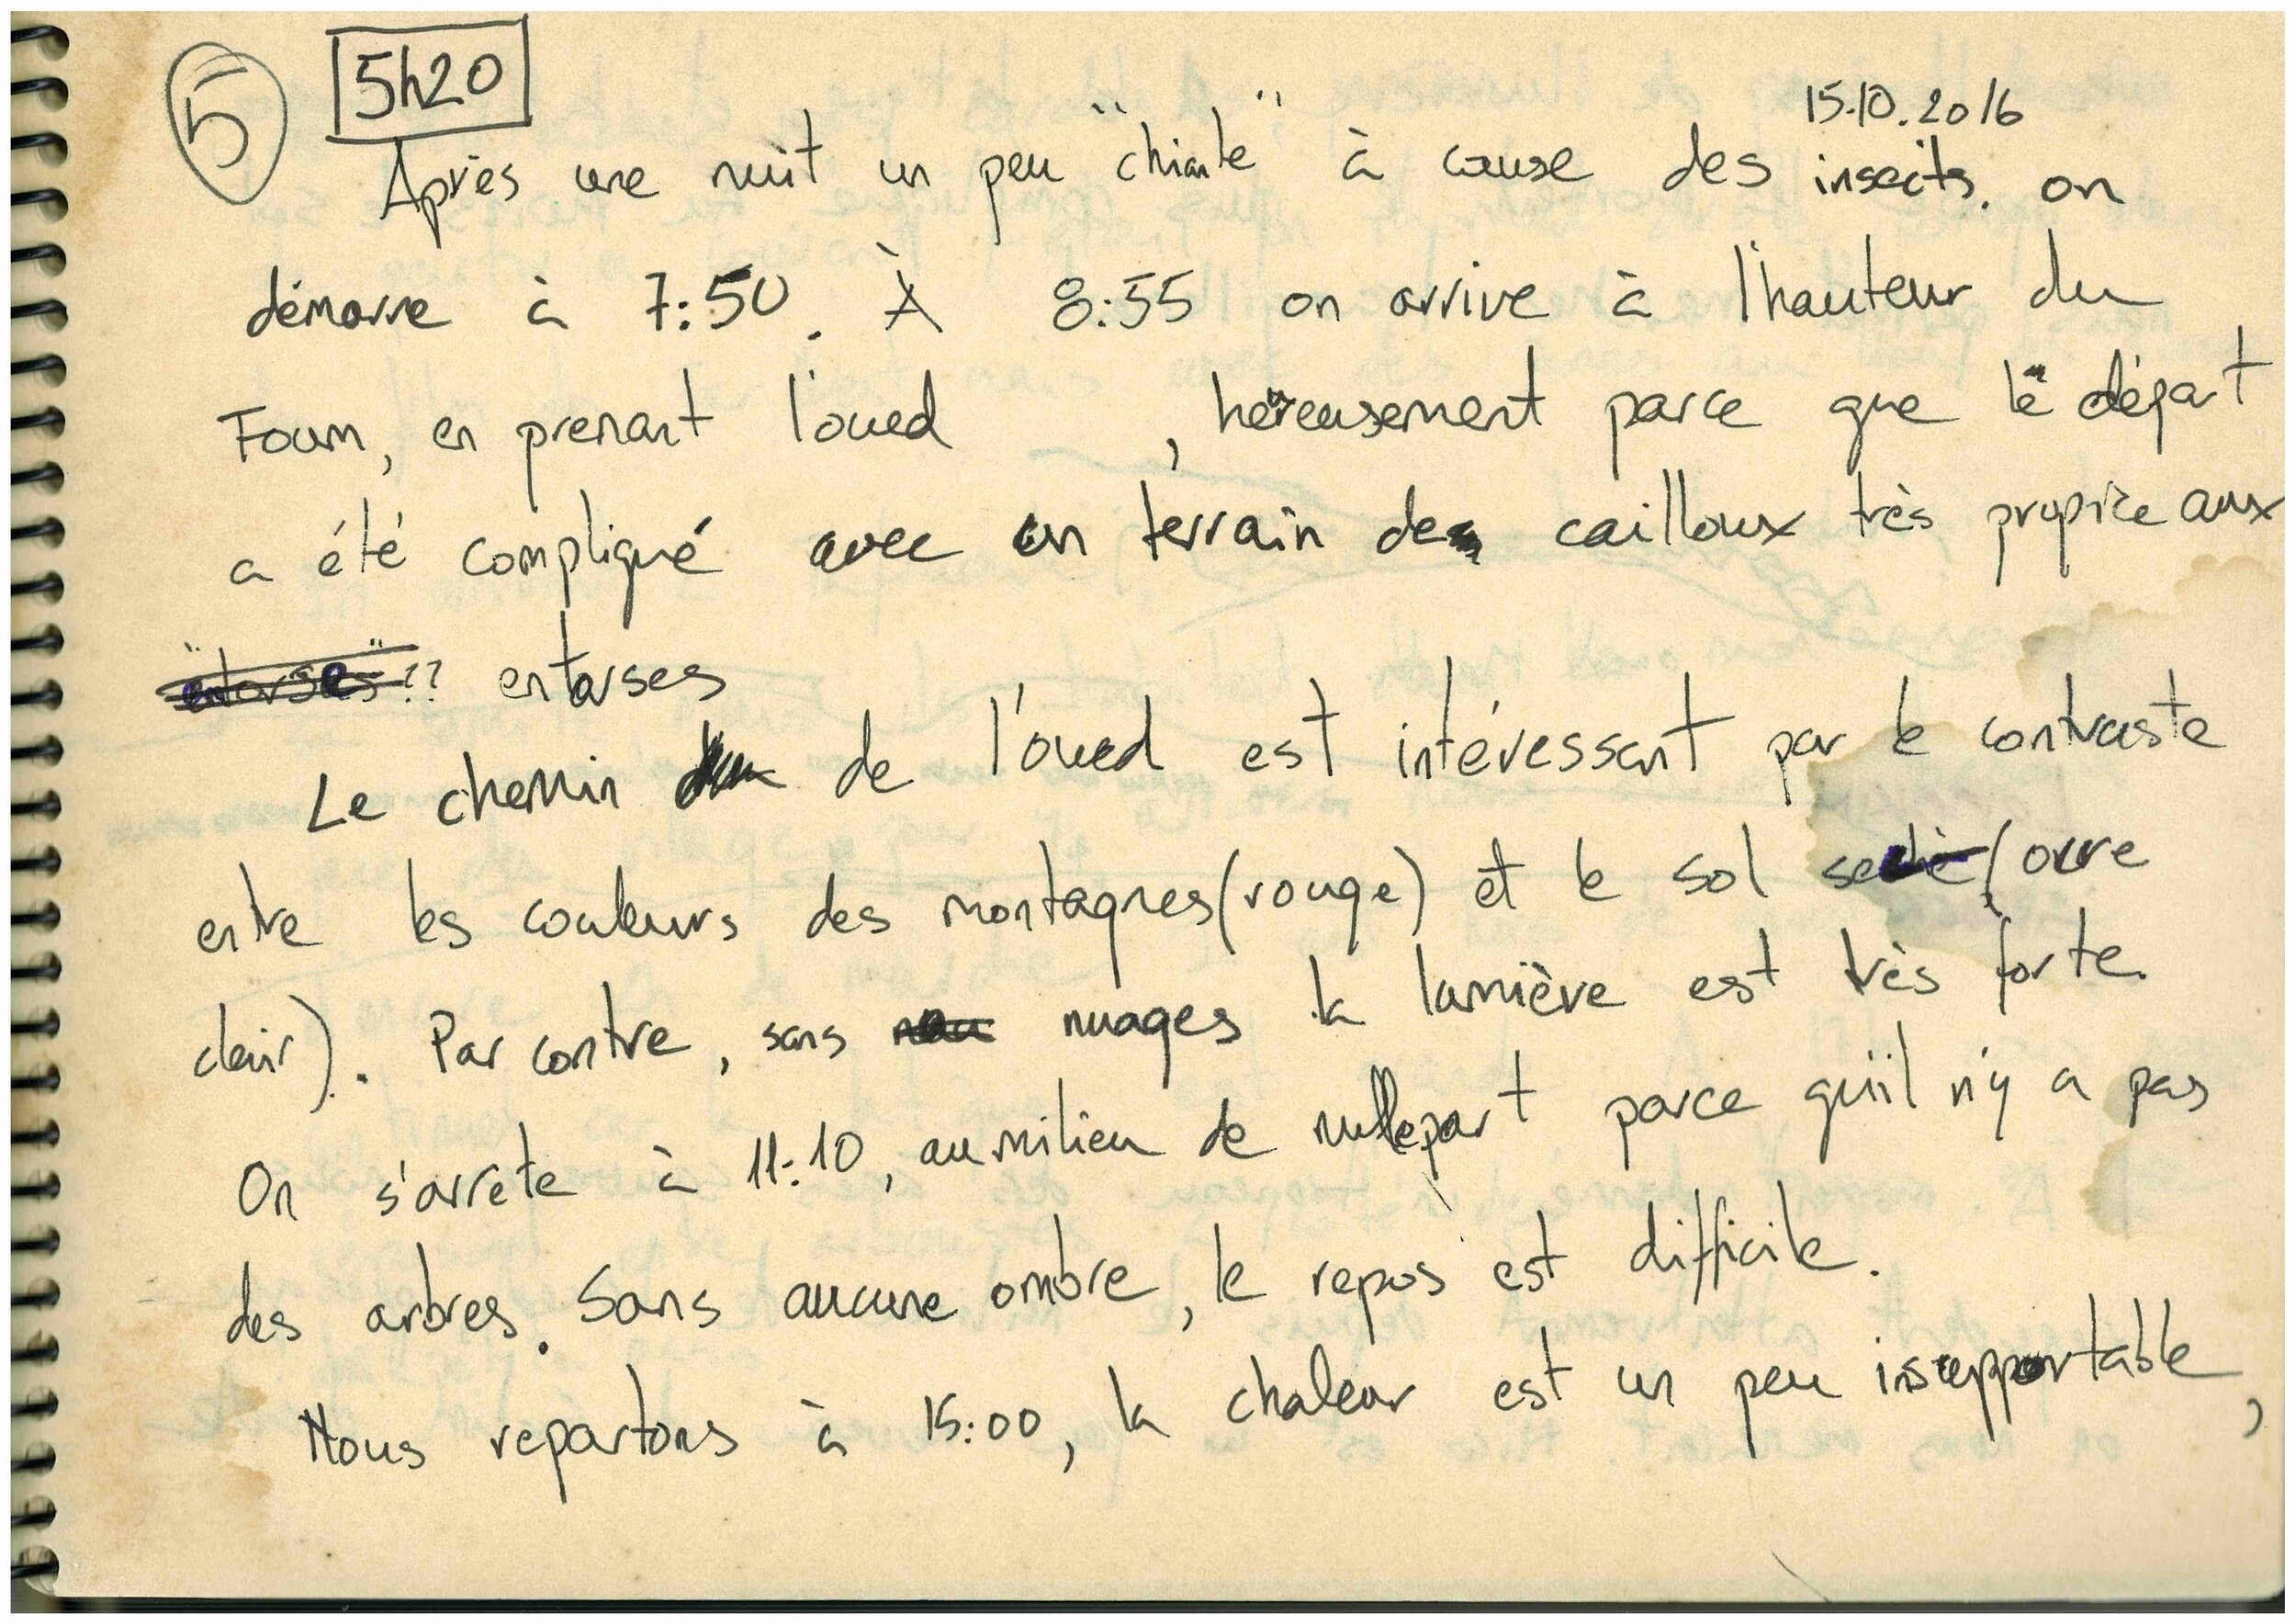 5 5h20
15.10.2016
Après une nuit un peu "chiante" à cause des insects. on
démarre à 7:50. À 8:55 on arrive à l'hauteur du
Foum, en prenant l'oued , héreusement parce que le départ
a été compliqué avec un terrain de cailloux très propice aux
"entorses"?? entorses
Le chemin de l'oued est intéressant par le contraste
entre les couleurs des montagnes (rouge) et le sol (ocre
clair). Par contre, sans nuages la lumière est très forte.
On s'arrête à 11:10, au milieu de nullepart parce qu'il n'y a pas
des arbres. Sans aucune ombre, le repos est difficile.
Nous repartons à 15:00, la chaleur est un peu insupportable,